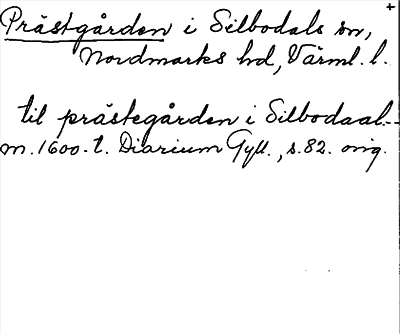 +
Prästgården i Silbodals sn,
Nordmarks hd, Värml. l.
til prästegården i Silbodaal.--
m. 1600-t. Diarium Gyll., s. 82. orig.